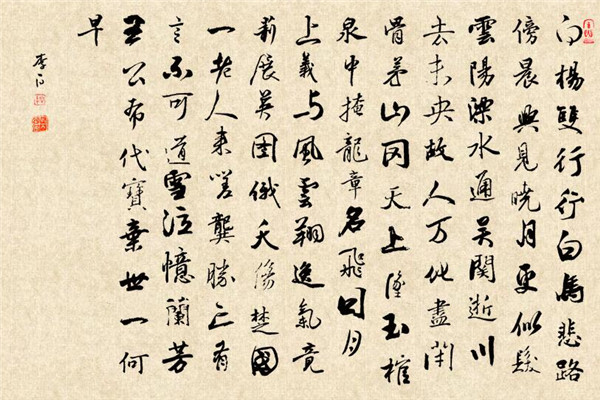 白楊雙行行白馬悲路
傍晨興見曉月更似髮
雲陽溧水通吴関逝川
去未央故人万化盡閑
骨茅山冈天上墜玉棺
泉中掩龍章名飛日月
上義与風雲翔逸氣竟
展英图俄夭傷楚國
一老人来嗟龔勝亡有
言不可道雪泣憶蘭芳
王公希代寶棄世一何
早
李白